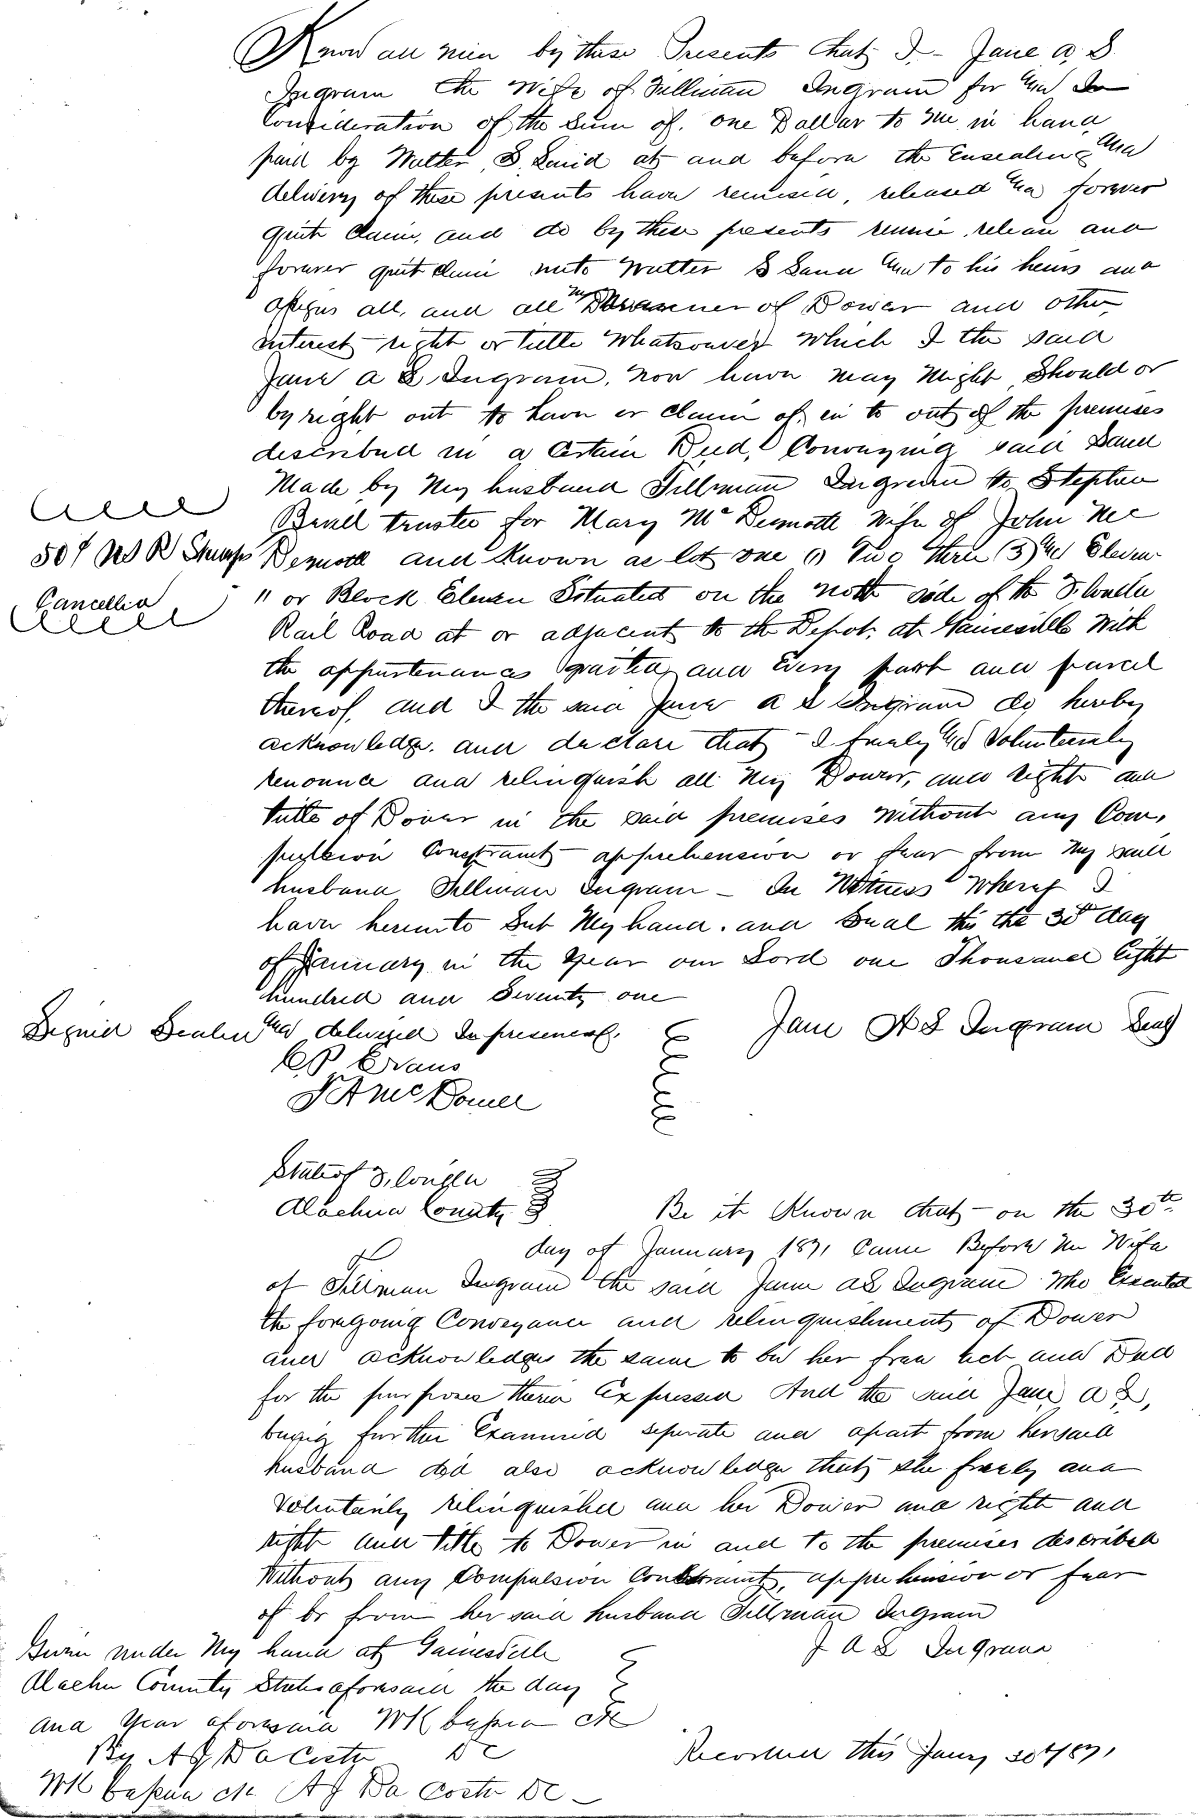 Know all men by these Presents that I - Jane A. S.
Ingram the Wife of Tillman Ingram for and In
Consideration of the Sum of. one Dollar to me in hand
paid by Walter S. Said at and before the Ensealing and
delivery of these presents have remised, released and forever
quit claim, and do by these presents remise release and
forever quit claim unto Walter S Sand and to his heirs and
assigns all, and all my manner of Dower and other
interest right or title whatsoever which I the said
Jane A S Ingram, now have may Might Should or
by right out to have or claim of, in to out of the premises
described in a Certain Deed, Conveying said Land
Made by My husband Tillman Ingram to Stephen
trustee for Mary Mc Dermott Wife of John Mc
Dermott and Known as lot one (1) Two Three (3) and Eleven
" or Block Eleven Situated on the north side of the Florida
Rail Road at or adjacent to the Depot. at Gainesville With
the appurtenances granted and Every part and parcel
thereof, and I the said Jane A S Ingram do hereby
acknowledge. and declare that I freely and Voluntarily
renounce and relinquish all My Dower, and right and
title of Dower in the said premises Without any Com,
pulsion Constraint apprehension or fear from My said
husband Tillman Ingram - In Witness Whereof I
have hereunto Set My hand. and Seal this the 30th day
of January in the Year our Lord one Thousand Eight
hundred and Seventy one
50¢ US R Stamps
Cancelled
Signed Sealed and delivered In presence of.
Jane A S Ingram Seal
Evans
McDowell
State of Florida
Alachua County
Be it Known that - on the 30th
day of Jannary 1871 Came Before Me Wife
of Tillman Ingram the said Jane A S Ingram Who Executed
the foregoing Conveyance and relinquishments of Dower
and acknowledges the same to be her free act and Deed
for the purposes therein Expressed And the said Jane A S,
being further Examined seperate and apart from her said
husband did also acknowledge that she freely and
Voluntarily relinquished and her Dower and right and
right and title to Dower in and to the premises described
Without any Compulsion Constraint, apprehension or fear
of or from her said husband Tillman Ingram
J A S Ingram
Given under My hand at Gainesville
Alachu County State aforesaid the day
and Year aforesaid WK Cessna Clk
By A J Da Costa DC
Recorded this Jany 30th 1871
WK Cessna clk. A J Da Costa DC -